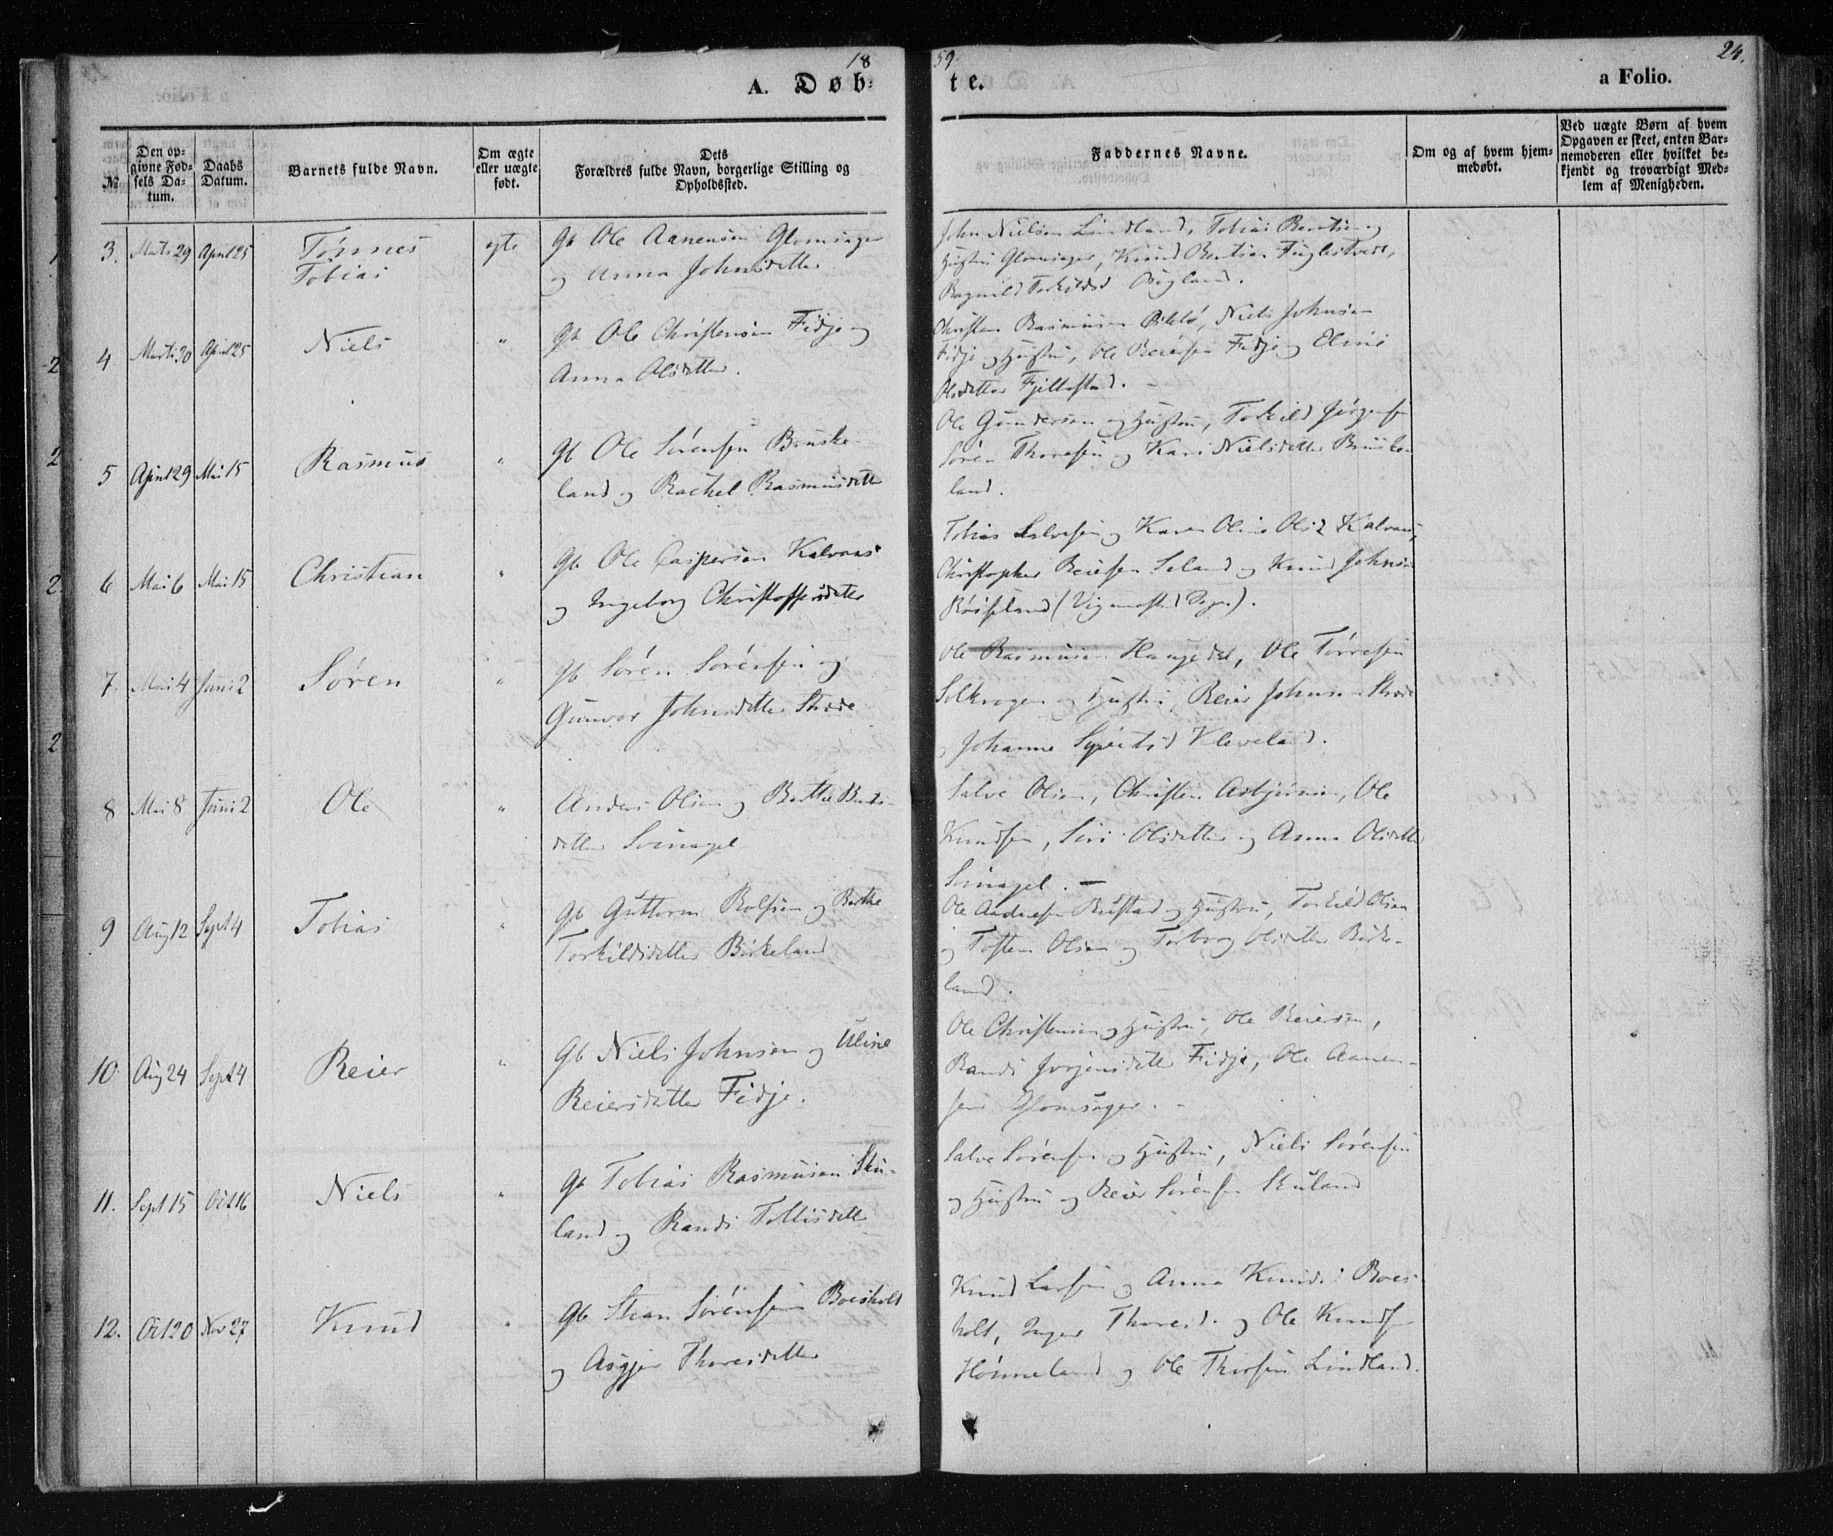 18 59. 24.
A. Døb- te. a Folio.
№
Den op-
givne Fød-
sels Da-
tum.
Daabs
Datum.
Barnets fulde Navn.
Om ægte
eller uægte
født.
Dets
Forældres fulde Navn, borgerlige Stilling og
Opholdssted.
Faddernes Navne.
Om og af hvem hjem-
medøbt.
Ved uægte Børn af hvem
Opgaven er skeet, enten Bar-
nemoderen eller hvilket be-
kjendt og troværdigt Med-
lem af Menigheden.
3. Marts 29 April 25 Tønnes
Tobias
egte
Gb Ole Aanensen Glomsager
og Anna Johnsdatter
John Nielsen Lindland, Tobias Bentsen og
Hustru Glomsager, Knud Bentsen Fuglestvedt,
Ragnild Torkildsd
4 Marts 30 April 25 Niels "
Gb Ole Christensen Fidje og
Anna Olsdatter.
Christen Rasmusen Niels Johnsen
Fidje og Hustru, Ole Reiersen Fidje og
Olsdatter Fjellestad.
5 April 29 Mai 15 Rasmus "
Gb Ole Sørensen Bruske-
land og Rachel Rasmusdatter
Ole Gundersen og Hustru, Torkild Jørgensen
Søren Thoresen og Kari Nielsdatter Bruske-
land.
6 Mai 6 Mai 15 Christian "
Gb Ole Caspersen Kalvaas
og Ingeborg Christoffersdatter
Tobias Salvesen og Karen Oline Olsd Kalvaas,
Christopher Reiersen Seland og Knud Johnsen
(Vigemostad Sogn).
7. Mai 4 Juni 2 Søren "
Gb Søren Sørensen og
Gunvor Johnsdatter Stræde
Ole Rasmusen Haugedal, Ole Tørresen
Solkrogen og Hustru, Reier Johnsen Stræde
og Johanne Syvertsd Kleveland.
8 Mai 8 Juni 2 Ole "
Anders Olsen og Berthe Bents-
datter Svinagel
Salve Olsen, Christen Asbjørnsen, Ole
Knudsen, Siri Olsdatter og Anna Olsdatter
Svinagel.
9 Aug 12 Sept 4 Tobias "
Gb Guttorm Rolfsen og Berthe
Torkildsdatter Birkeland
Ole Andersen Rustad og Hustru, Torkild Olsen
og Tosten Olsen og Torborg Olsdatter Birke-
land.
10 Aug 24 Sept 4 Reier "
Gb Niels Johnsen og Uline
Reiersdatter Fidje.
Ole Christensen og Hustru, Ole Reiersen,
Randi Jørgensdatter Fidje, Ole Aanen-
sen Glomsager.
11. Sept 15 Oct 16 Niels "
Gb Tobias Rasmusen Sku-
land og Randi Tollisdatter
Salve Sørensen og Hustru, Niels Sørensen
og Hustru og Reier Sørensen Skuland
12. Oct 20 Nov 27 Knud "
Gb Stean Sørensen Boesholt
og Asgjer Thoresdatter
Knud Larsen og Anna Knudsd Boes-
holt, Inger Thoresd. og Ole Knudsen
Hønneland og Ole Thorsen Lindland.